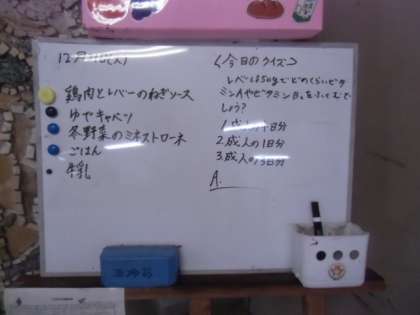 鶏肉とレバーのねぎソース
ゆでキャベツ
冬野菜のミネストローネ
ごはん
牛乳
<今日のクイズ>
レバーは50gでどのくらいビタ
ミンAやビタミンB₂をふくむで
しょう?
2.成人の1日分
3.成人の
A.